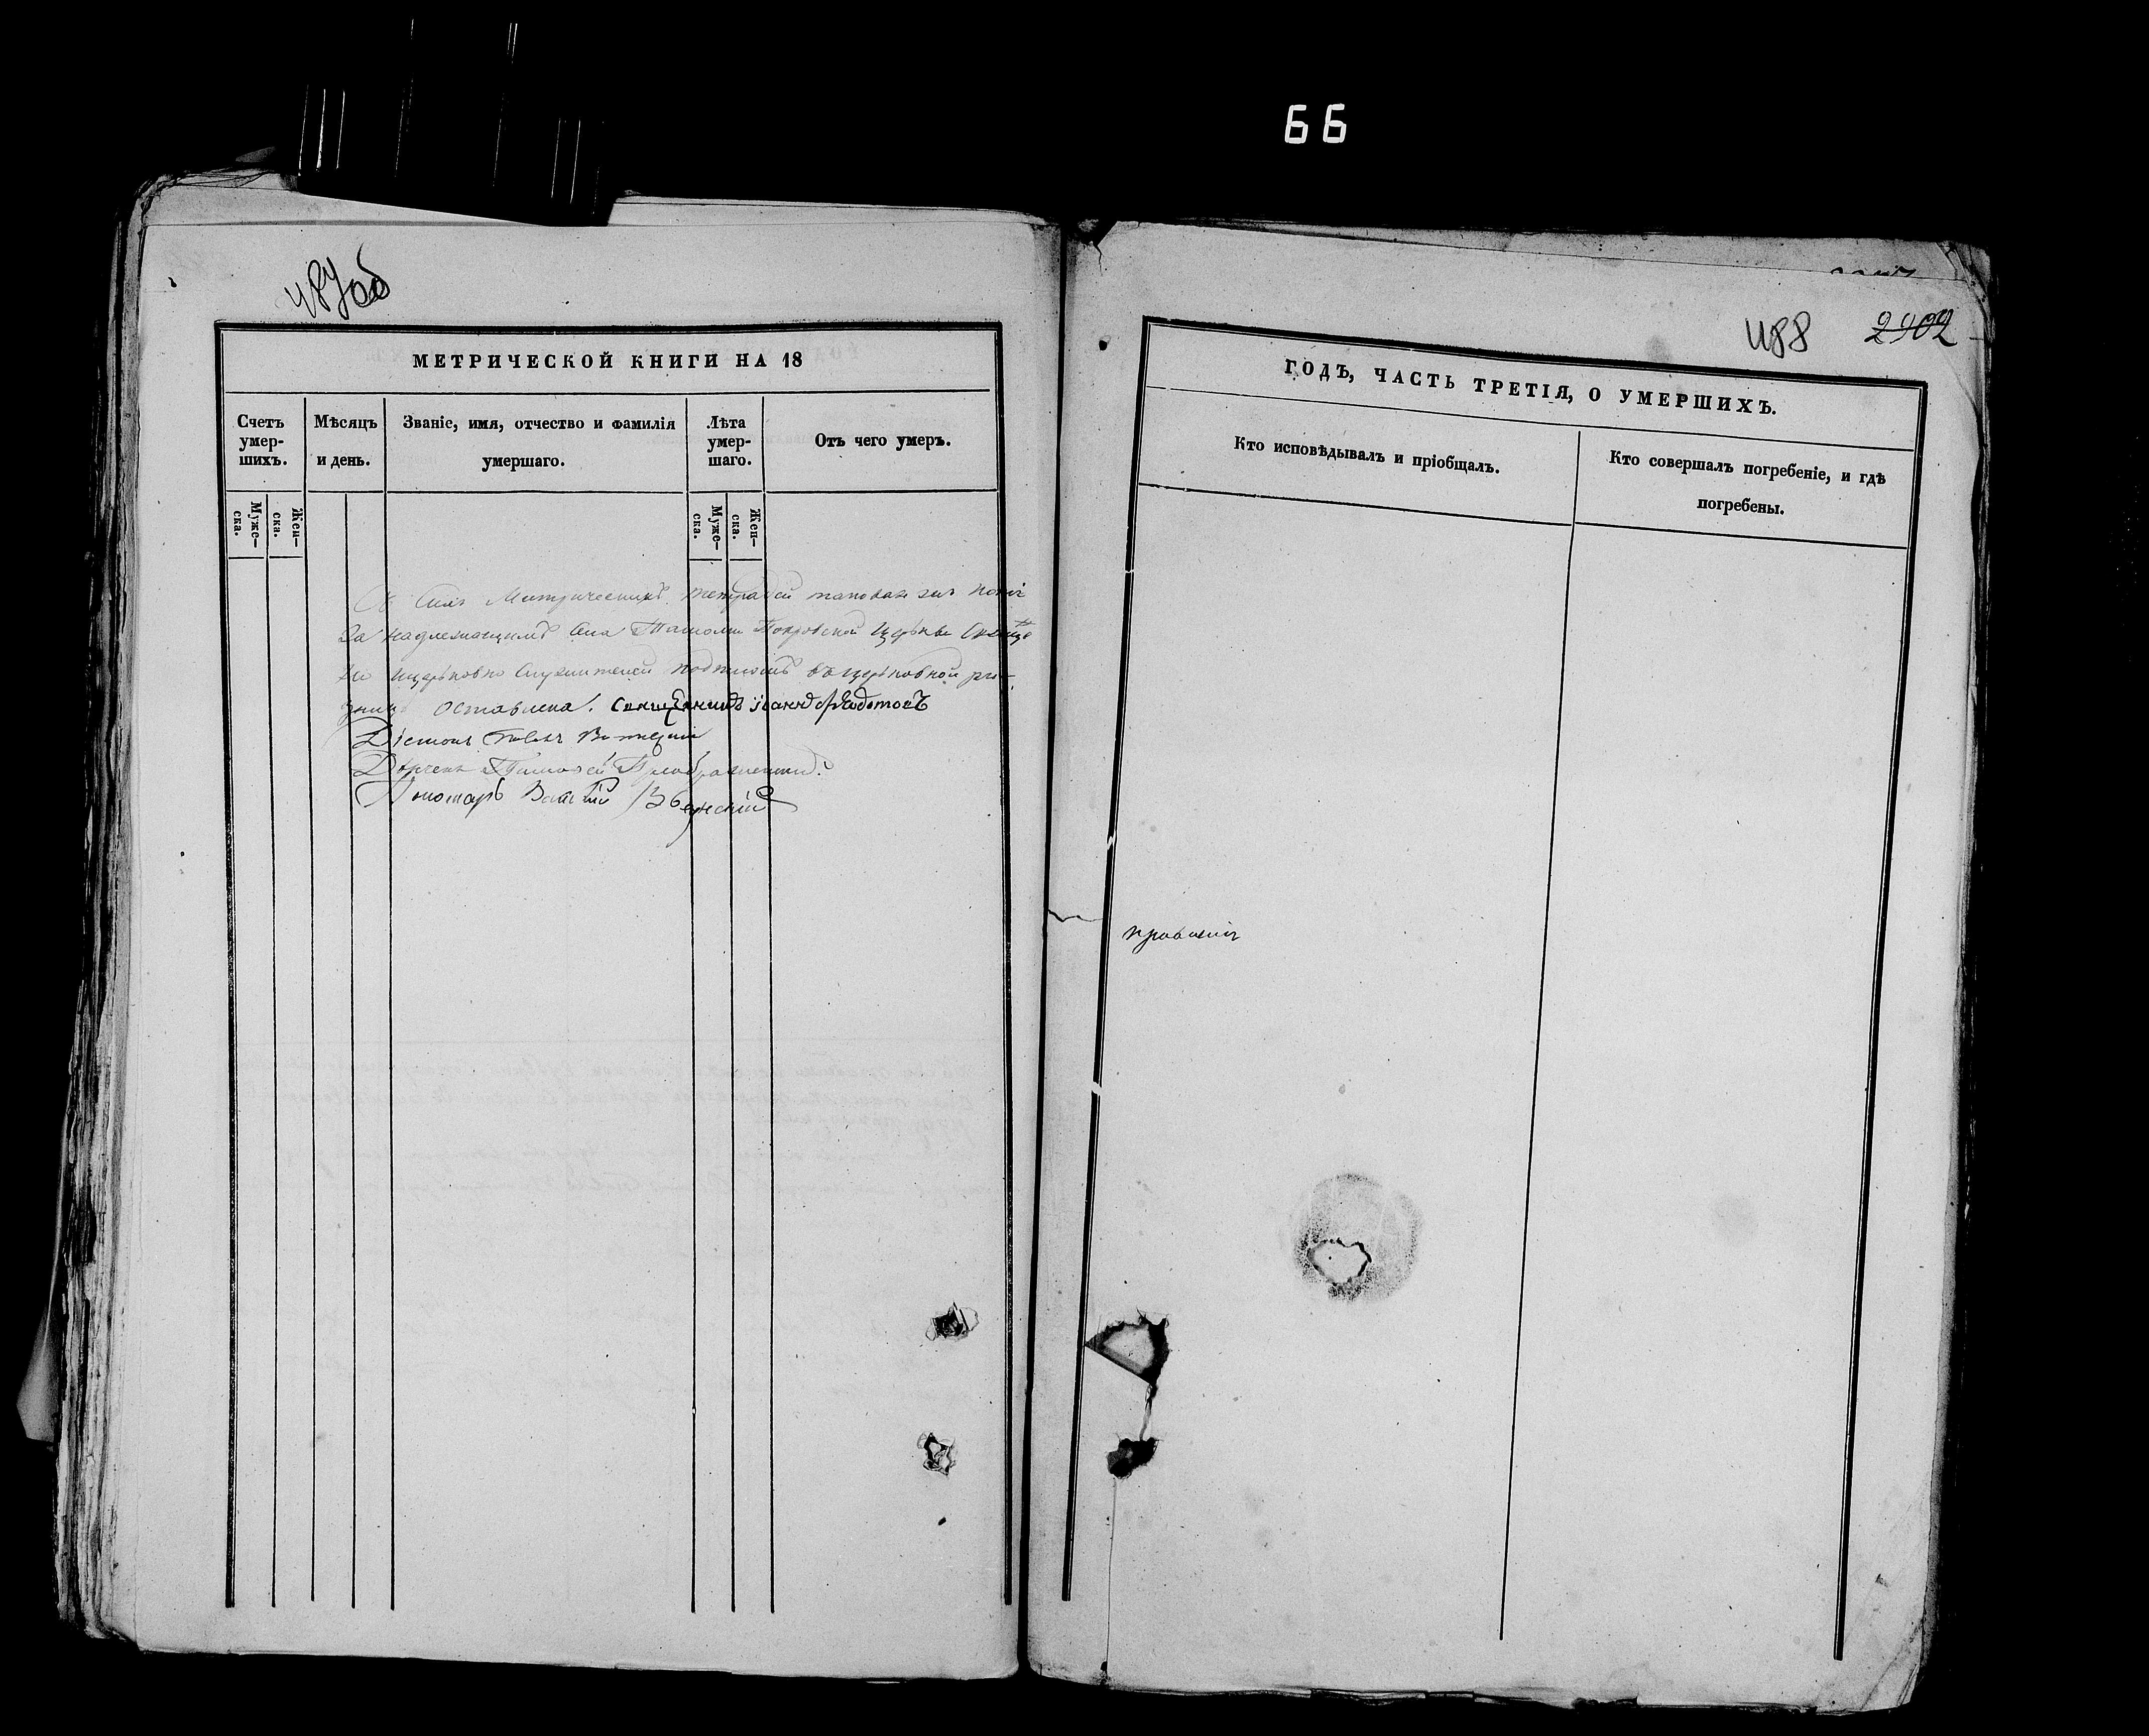 66
487об
МЕТРИЧЕСКОЙ КНИГИ НА 18
Счетъ умер-шихъ.
Мѣсяцъ и день.
Званіе, имя, отчество и фамилія умершаго.
Лѣта умер-шаго.
Отъ чего умеръ.
Муже-ска.
Жен-ска.
Муже-ска.
Жен-ска.
Метрическихъ тетрадей таковая же копія
за надлежащимъ села Покровской церкви
церковно служителей подписомъ въ церковной
оставлена. Священникъ Іоаннъ Ѳедотовъ
Діаконъ
Дьячекъ Тимоѳей Преображенский
Пономарь
488
2902
ГОДЪ, ЧАСТЬ ТРЕТІЯ, О УМЕРШИХЪ.
Кто исповѣдывалъ и пріобщалъ.
Кто совершалъ погребеніе, и гдѣ погребены.